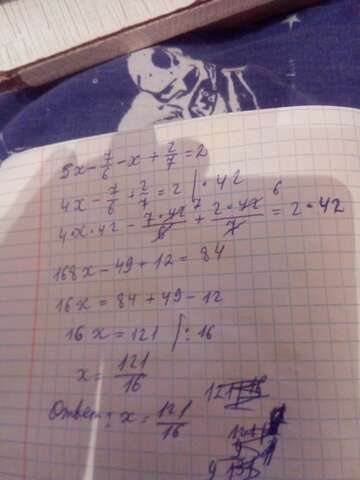 5x - 7/6 - x + 2/7 = 2
4x - 7/6 + 2/7 = 2 | · 42
4x · 42 - 7 · 42 7/6 + 2 · 42 6/7 = 2 · 42
168x - 49 + 12 = 84
16x = 84 + 49 - 12
16x = 121 | : 16
x = 121/16
Ответ: x = 121/16